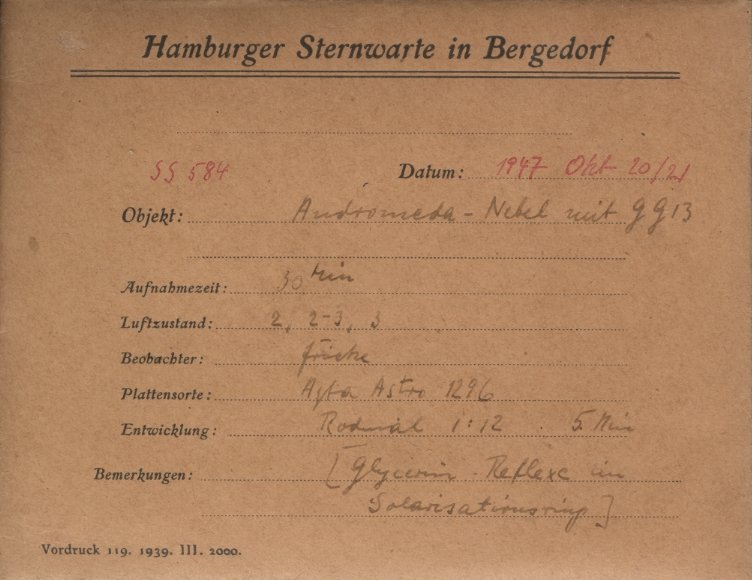 Hamburger Sternwarte in Bergedorf
SS 584 Datum: 1947 Okt 20/21
Objekt: Andromeda-Nebel mit GG13
Aufnahmezeit: 30 Min
Luftzustand: 2, 2-3, 3
Beobachter: Fricke
Plattensorte: Agfa Astro 1296
Entwicklung: Rodinal 1:12 5 Min
Bemerkungen: [Glycerin-Reflexe im
Solarisationsring]
Vordruck 119. 1939. III. 2000.